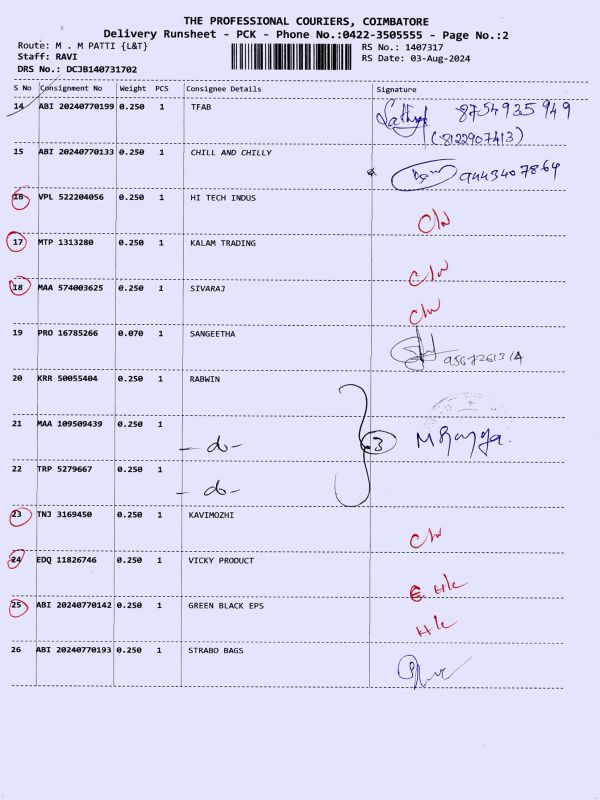 THE PROFESSIONAL COURIERS, COIMBATORE
Delivery Runsheet - PCK - Phone No.:0422-3505555 - Page No.:2
Route: M . M PATTI {L&T}
RS No.: 1407317
Staff: RAVI
RS Date: 03-Aug-2024
DRS No.: DCJB140731702
S No Consignment No Weight PCS Consignee Details Signature
14 ABI 20240770199 0.250 1 TFAB 8754935949
(8122907413)
15 ABI 20240770133 0.250 1 CHILL AND CHILLY
9443407864
16 VPL 522204056 0.250 1 HI TECH INDUS
C/N
17 MTP 1313280 0.250 1 KALAM TRADING
C/N
18 MAA 574003625 0.250 1 SIVARAJ
C/N
19 PRO 16785266 0.070 1 SANGEETHA
20 KRR 50055404 0.250 1 RABWIN
21 MAA 109509439 0.250 1
- do - 3
22 TRP 5279667 0.250 1
- do -
23 TNJ 3169450 0.250 1 KAVIMOZHI
C/N
24 EDQ 11826746 0.250 1 VICKY PRODUCT
H/C
25 ABI 20240770142 0.250 1 GREEN BLACK EPS
H/C
26 ABI 20240770193 0.250 1 STRABO BAGS